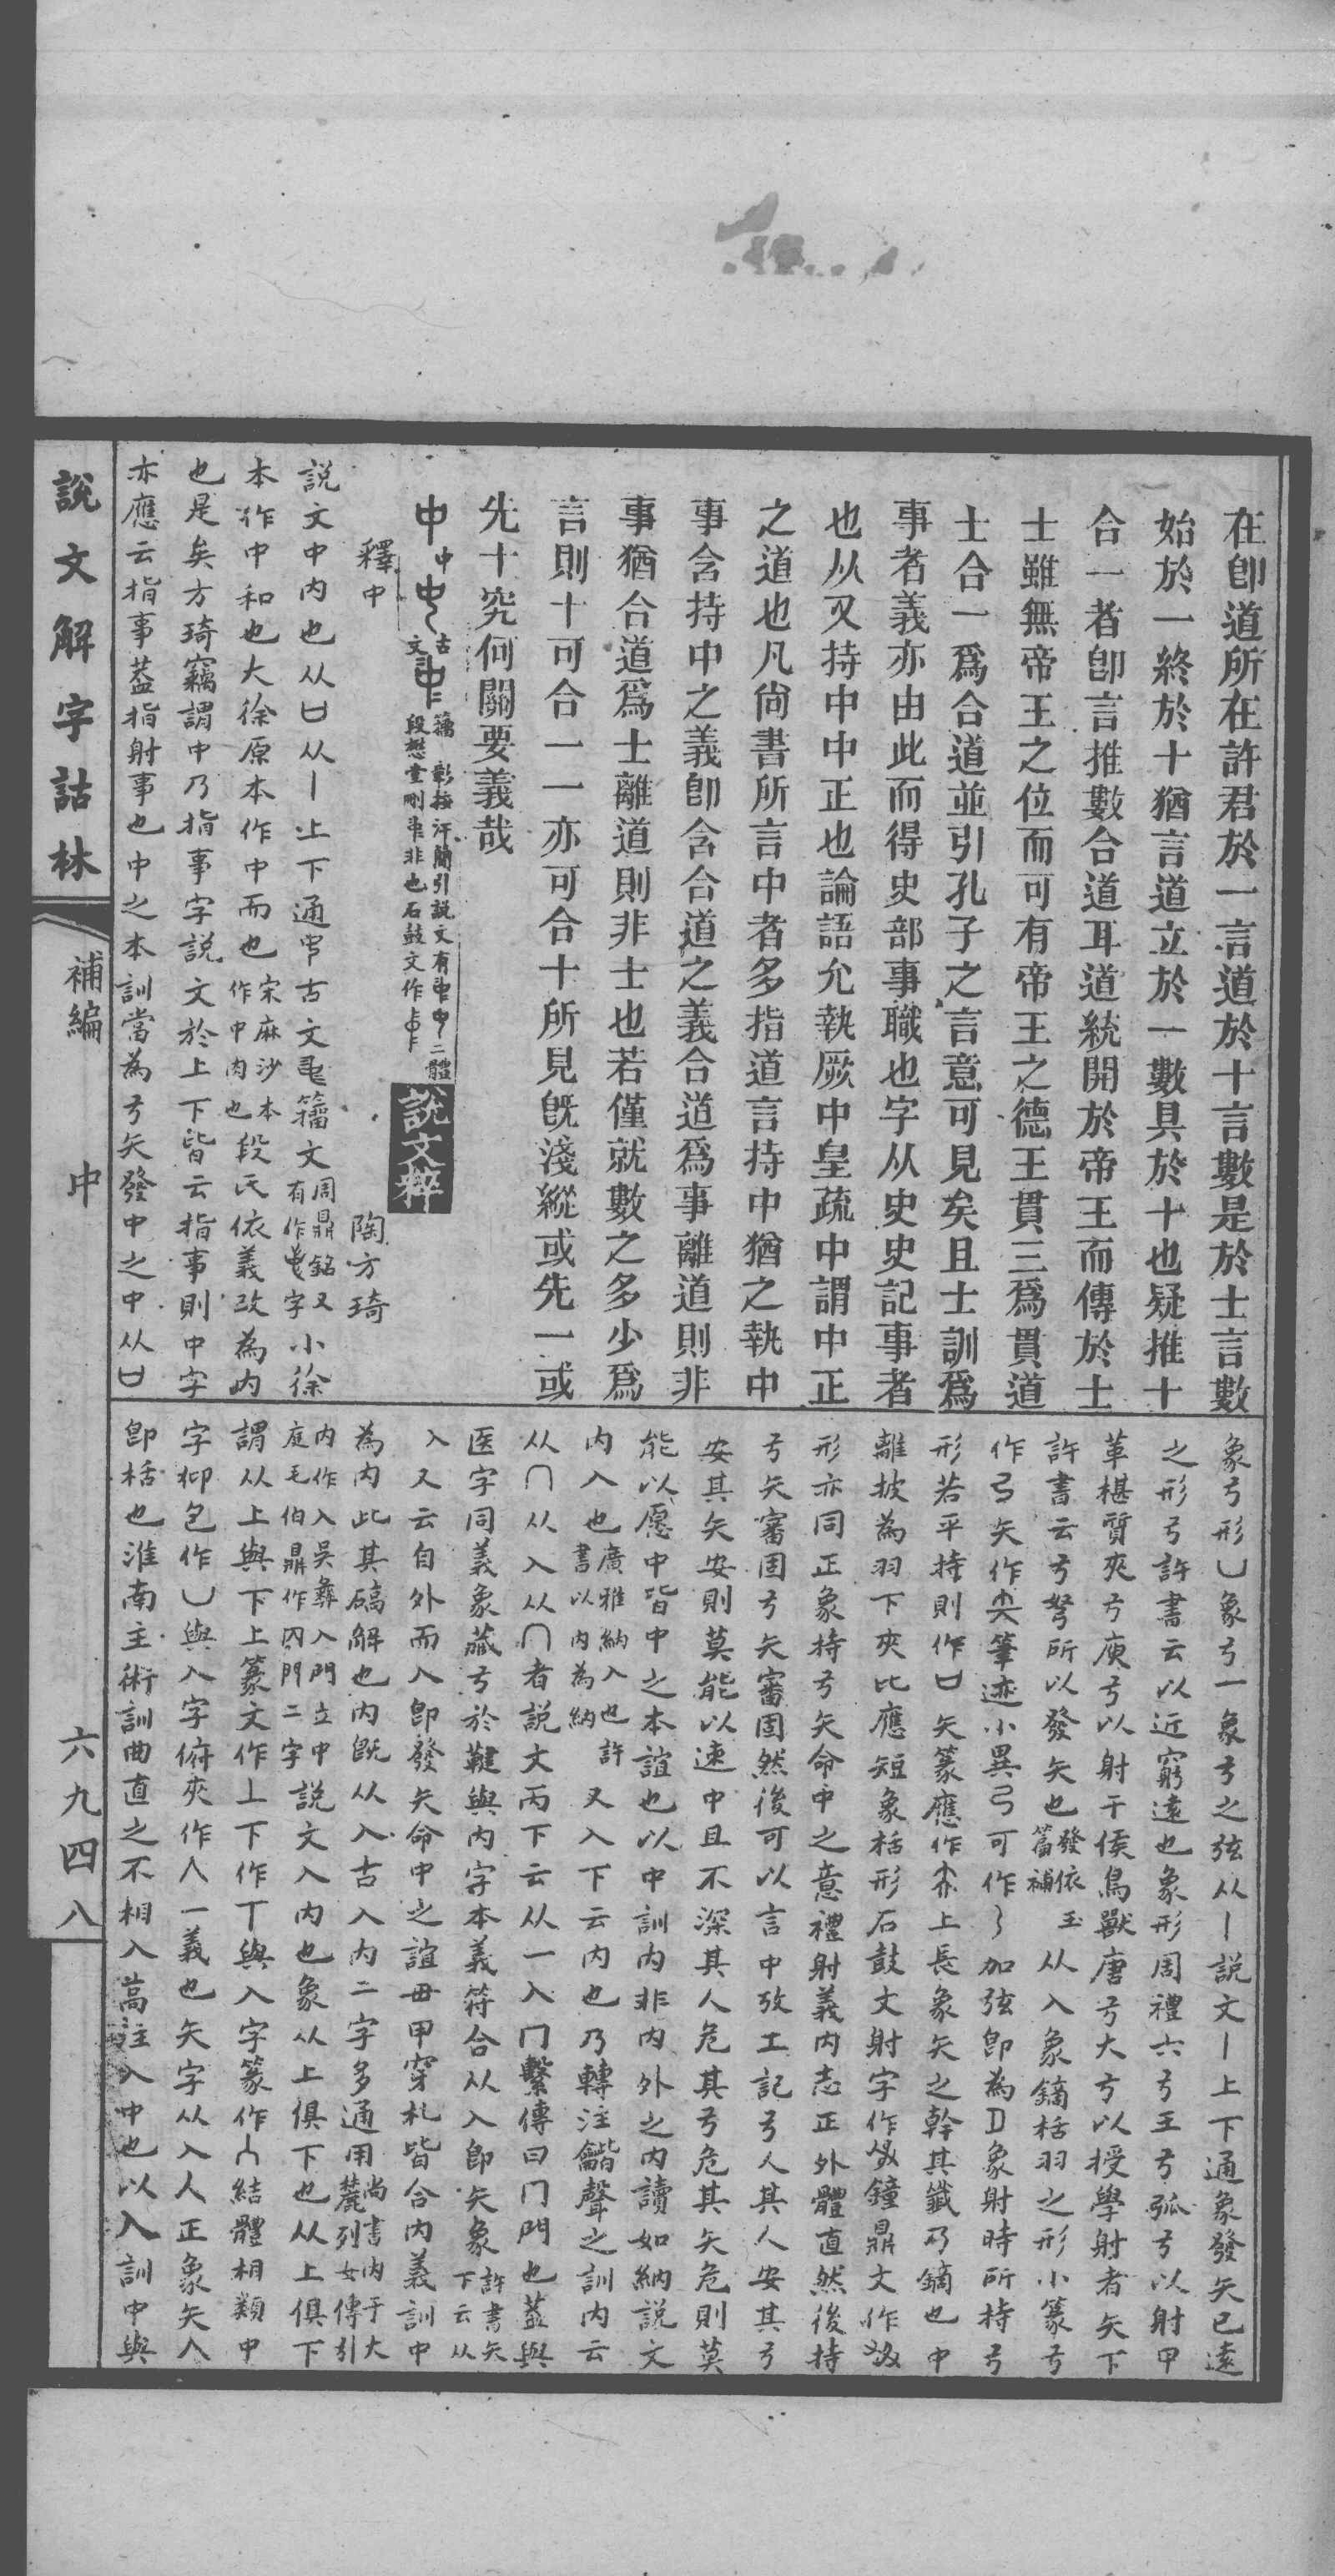 在卽道所在許君於一言道於十言數是於士言數
始於一終於十猶言道立於一數具於十也疑推十
合一者卽言推數合道耳道統開於帝王而傳於士
士雖無帝王之位而可有帝王之德王貫三爲貫道
士合一爲合道並引孔子之言意可見矣且士訓爲
事者義亦由此而得史部事職也字从史史記事者
也从又持中中正也論語允執厥中皇疏中謂中正
之道也凡尙書所言中者多指道言持中猶之執中
事含持中之義卽含合道之義合道爲事離道則非
事猶合道爲士離道則非士也若僅就數之多少爲
言則十可合一一亦可合十所見旣淺縱或先一或
先十究何關要義哉
中
中
古文
籒 彰按汗簡引說文有
二體
段懋堂刪 非也石鼓文作
說文粹
釋中 陶方琦
說文中内也从口从丨上下通 古文 籒文周鼎銘又有作 字小徐
本作中和也大徐原本作中而也宋麻沙本作中肉也段氏依義改為内
也是矣方琦竊謂中乃指事字説文於上下皆云指事則中字
亦應云指事葢指射事也中之本訓當為弓矢發中之中从口
象弓形凵象弓一象弓之弦从丨説文丨上下通象發矢已遠
之形弓許書云以近窮遠也象形周禮六弓王弓弧弓以射甲
革椹質夾弓庾弓以射干侯鳥獸唐弓大弓以授學射者矢下
許書云弓弩所以發矢也發依玉篇補从入象鏑栝羽之形小篆弓
作弓矢作 筆迹小異弓可作 加弦卽為 象射時所持弓
形若平持則作口矢篆應作 上長象矢之幹其鐵乃鏑也中
離披為羽下夾比應短象栝形石鼓文射字作 鐘鼎文作
形亦同正象持弓矢命中之意禮射義内志正外體直然後持
弓矢審固弓矢審固然後可以言中攷工記弓人其人安其弓
安其矢安則莫能以速中且不深其人危其弓危其矢危則莫
能以愿中皆中之本誼也以中訓内非内外之内讀如納説文
内入也廣雅納入也許書以内為納又入下云内也乃轉注龤聲之訓内云
从冂从入从冂者説文丙下云从一入冂繫傳曰冂門也葢與
医字同義象藏弓於鞬與内字本義符合从入卽矢象許書矢下云从
入又云自外而入卽發矢命中之誼毌甲穿札皆合内義訓中
為内此其碻解也内旣从入古入内二字多通用尚書内于大麓列女傳引
内作入吳彝入門立中庭毛伯鼎作内門二字説文入内也象从上俱下也从上俱下
謂从上與下上篆文作丄下作丅與入字篆作 結體相類中
字仰包作凵與入字俯夾作人一義也矢字从入人正象矢入
卽栝也淮南主術訓曲直之不相入高注入中也以入訓中與
說文解字詁林
補編
中
六九四八